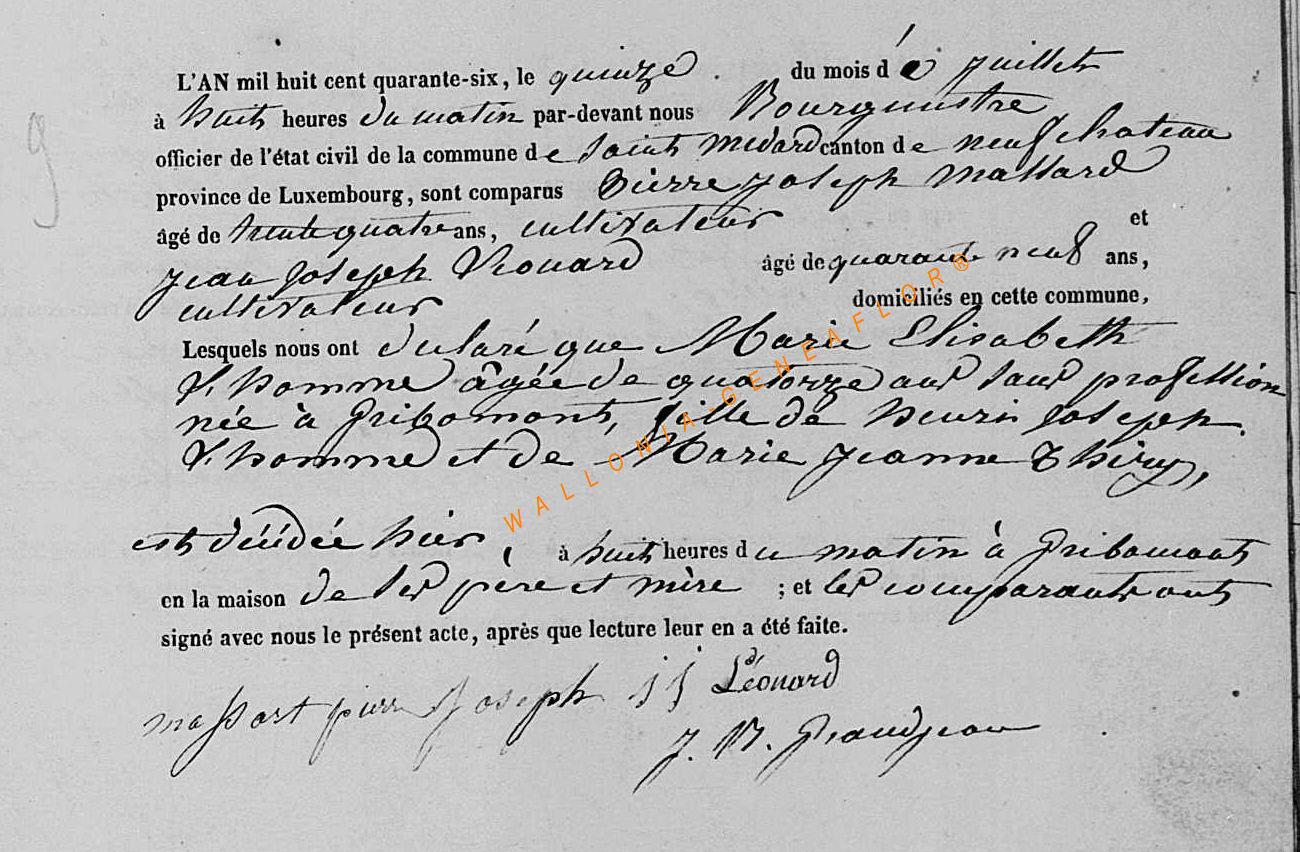 L'AN mil huit cent quarante-six, le quinze du mois de juillet
à huit heures du matin par-devant nous Bourgmestre
officier de l'état civil de la commune de Saint Medard canton de neufchateau
province de Luxembourg, sont comparus Pierre Joseph Massard
âgé de trente quatre ans, cultivateur et
Jean Joseph Léonard âgé de quarante neuf ans,
cultivateur domiciliés en cette commune,
Lesquels nous ont declaré que Marie Elisabeth
Lhomme âgée de quatorze ans sans profession
née à Gribomont, fille de henri Joseph
Lhomme et de Marie Jeanne Thiry,
est décédée hier, à huit heures du matin à Gribomont
en la maison de ses père et mère ; et les comparants ont
signé avec nous le présent acte, après que lecture leur en a été faite.
massart pierre Joseph JJ Léonard
J. B. Grandjean
9
WALLONIA-GENEAFLOR®